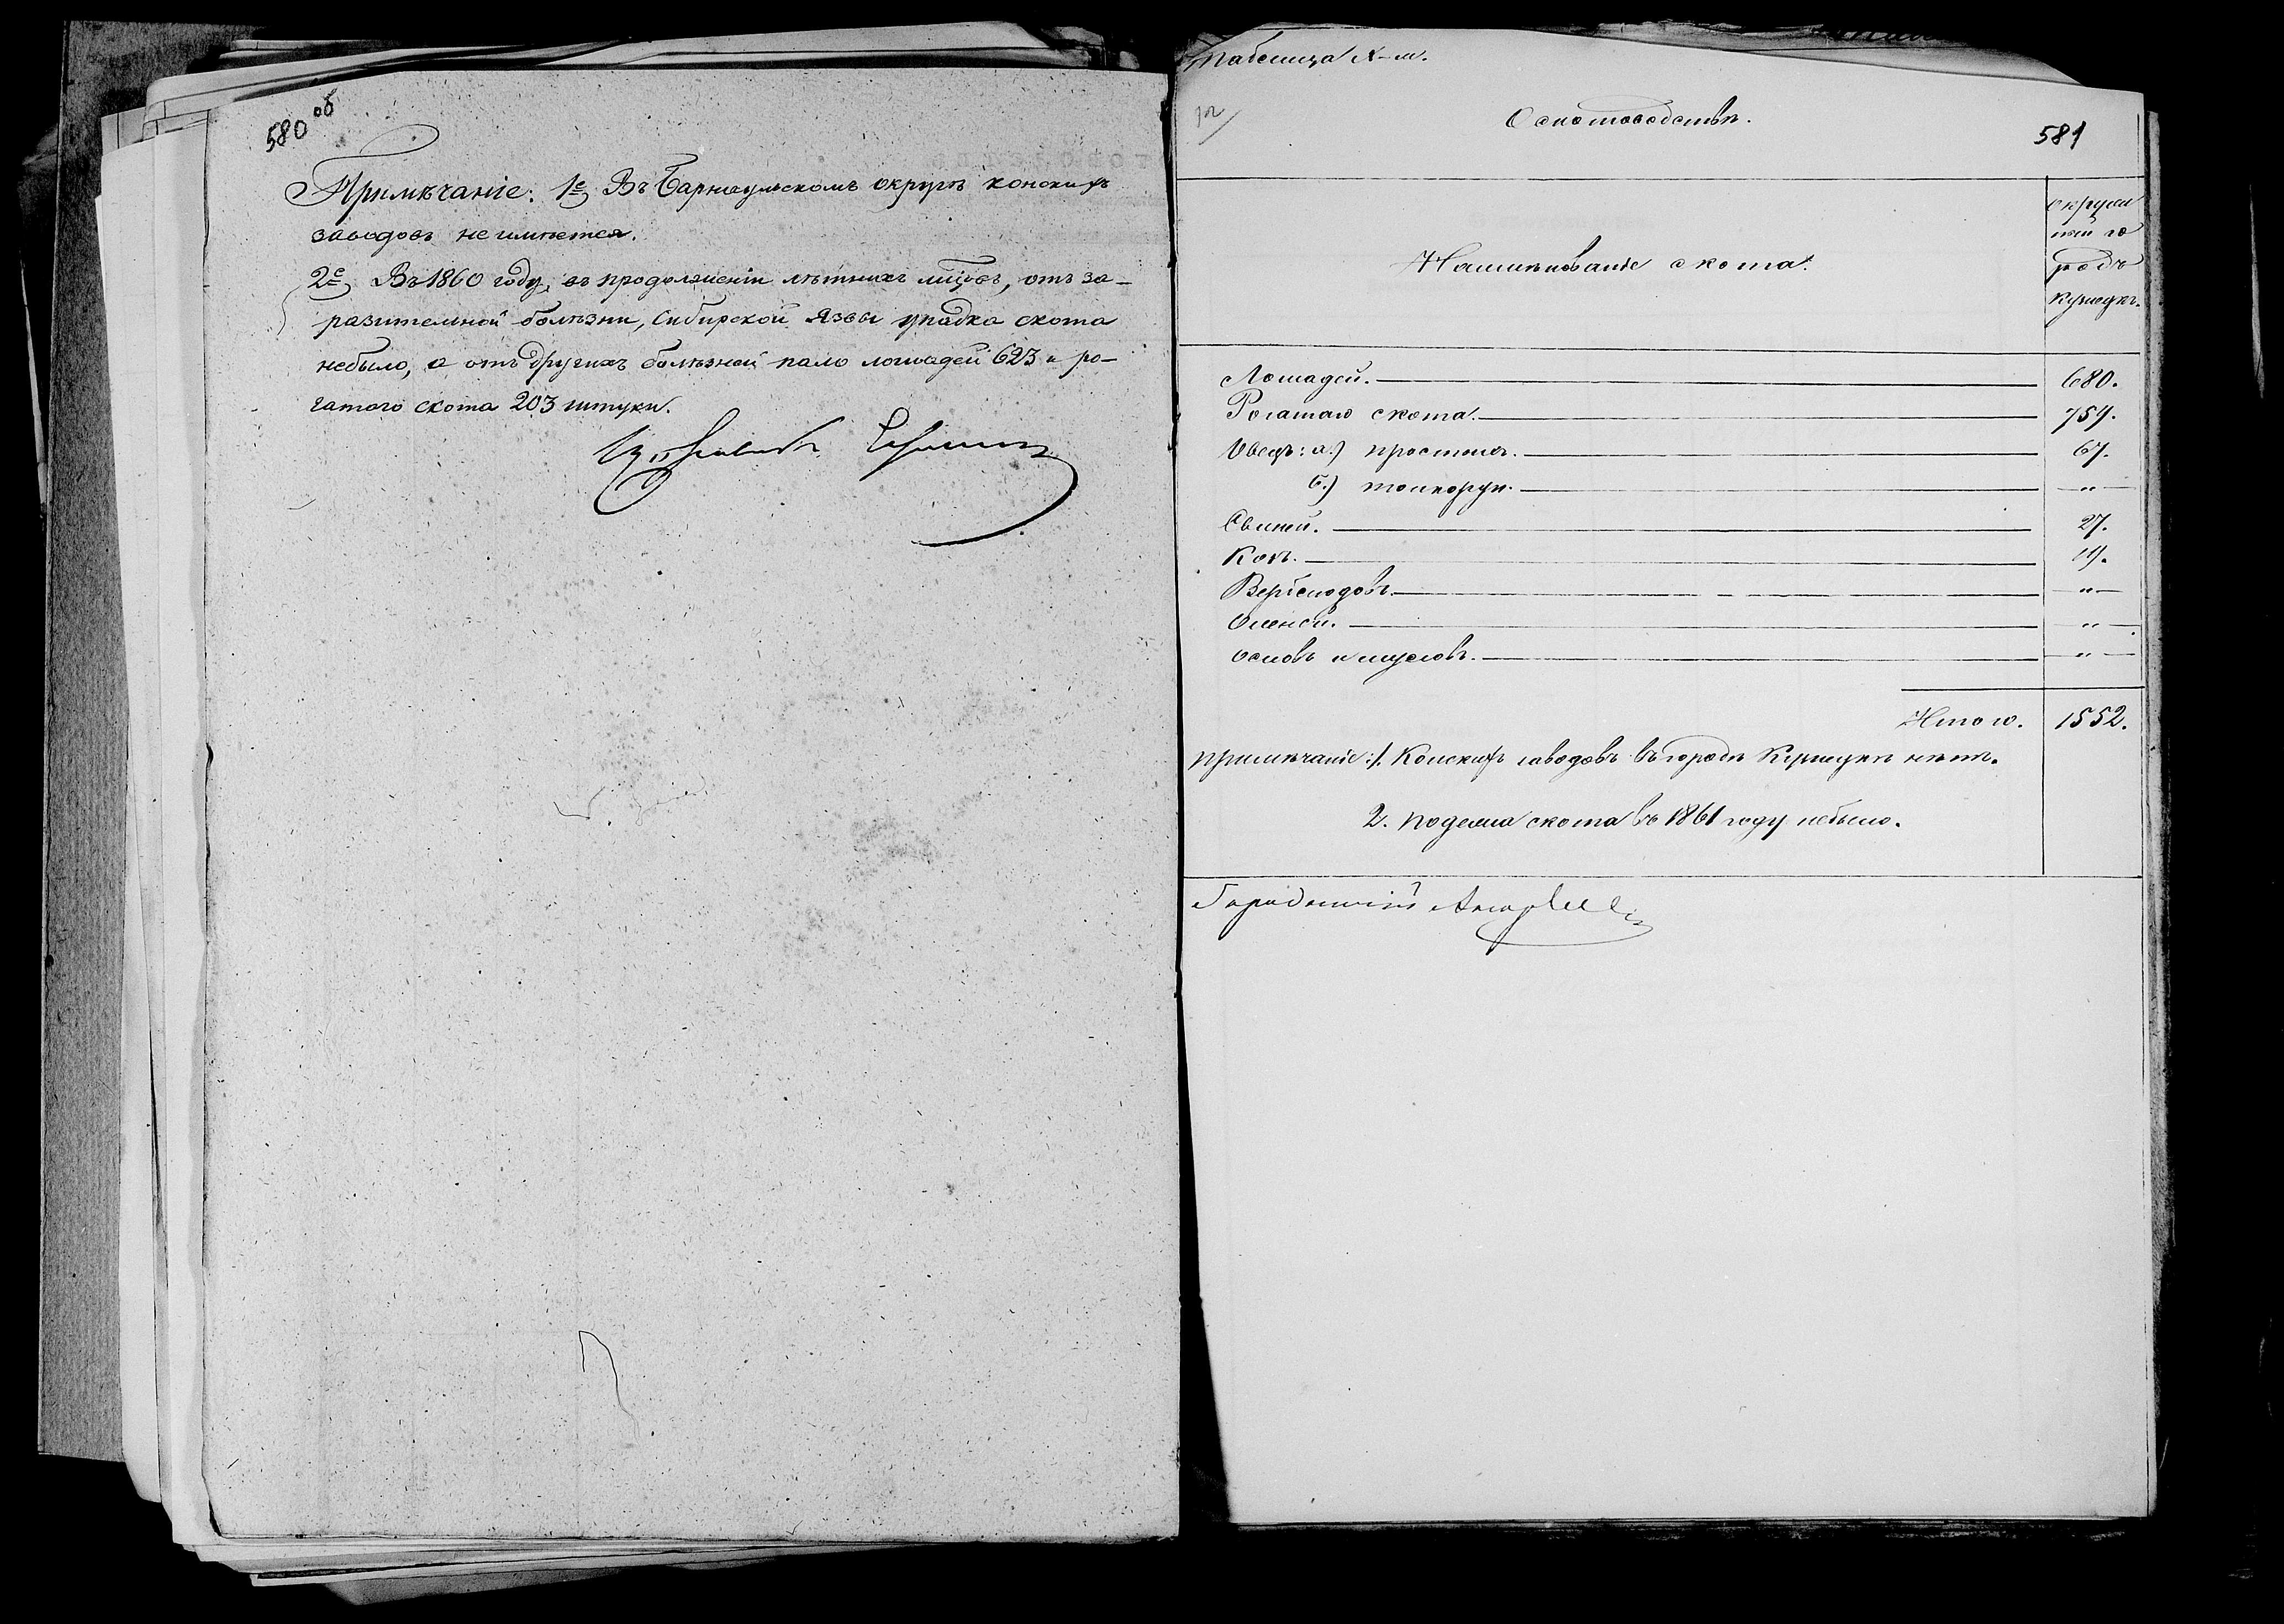 580 об
Примѣчаніе: 1е Въ Барнаульскомъ округѣ конскихъ
заводовъ не имѣется.
2е Въ 1860 году, въ продолженіи лѣтнихъ мцевъ, отъ за–
разительной болѣзни, Сибирской язвы упадка скота
небыло, а отъ другихъ болѣзней пало лошадей 623 и ро–
гатого скота 203 штуки.
Таблица
О скотоводствѣ.
581
Наименованіе скота.
окруж
ный го
родъ
Кузнецкъ.
Лошадей. 680.
Рогатаго скота. 759.
Овецъ: а.) простыхъ. 67.
б.) тонкорун. "
Свиней. 27.
Козъ. 19.
Верблюдовъ. "
Оленей. "
Ословъ и муловъ. "
Итого. 1552.
Примѣчаніе: 1. Конскихъ заводовъ въ городѣ Кузнецкѣ нѣтъ.
2. падежа скота въ 1861 году небыло.
Городничій